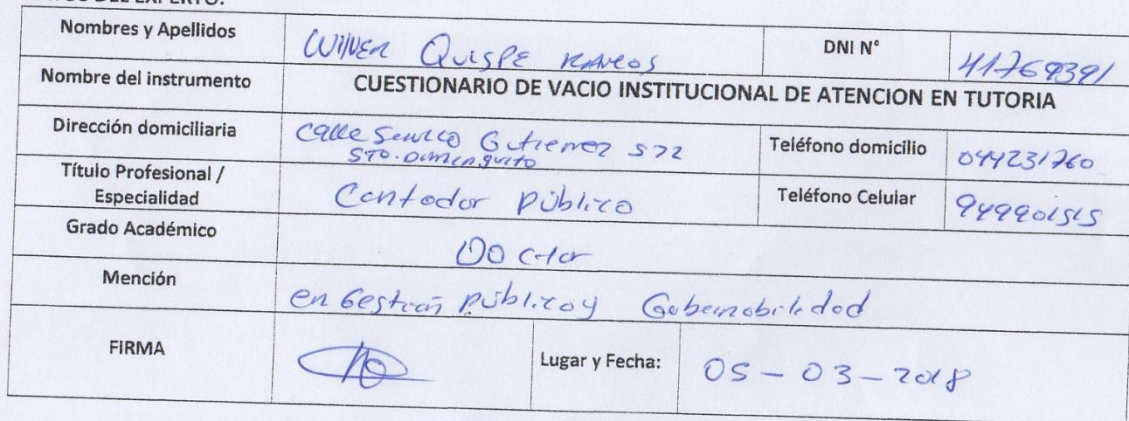 DEL EXPERTO:
Nombres y Apellidos Wilver Quispe DNI N° 41769391
Nombre del instrumento CUESTIONARIO DE VACIO INSTITUCIONAL DE ATENCION EN TUTORIA
Dirección domiciliaria Calle Gutierrez 572 Teléfono domicilio 044231760
Sto. Dominguito
Título Profesional /
Especialidad Contador Público Teléfono Celular 949901515
Grado Académico Doctor
Mención en Gestión Pública y Gobernabilidad
FIRMA Lugar y Fecha: 05-03-2018